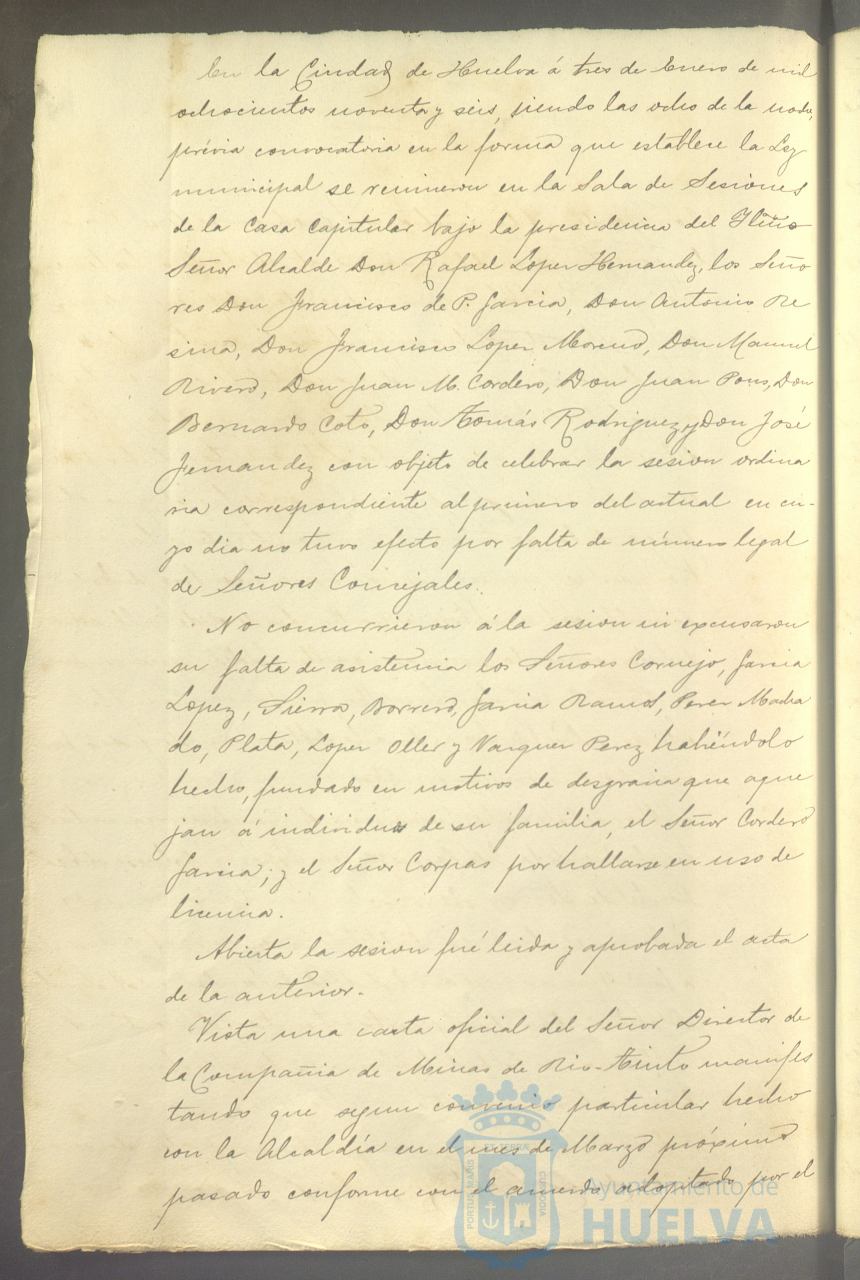 En la Ciudad de Huelva á tres de Enero de mil
ochocientos noventa y seis, siendo las ocho de la noche,
prévia convocatoria en la forma que establece la Ley
municipal se reunieron en la Sala de Sesiones
de la Casa Capitular bajo la presidencia del Iltmo
Señor Alcalde Don Rafael Lopez Hernandez, los Seño
res Don Francisco de P. Garcia, Don Antonio Re
sina, Don Francisco Lopez Moreno, Don Manuel
Rivero, Don Juan M. Cordero, Don Juan Pons, Don
Bernardo Coto, Don Tomás Rodriguez y Don José
Fernandez con objeto de celebrar la sesion ordina
ria correspondiente al primero del actual en cu-
yo dia no tuvo efecto por falta de número legal
de Señores Concejales.
No concurrieron á la sesion ni excusaron
su falta de asistencia los Señores Cornejo, Garcia
Lopez, Sierra, Borrero, Garcia Ramos, Perez Macha
do, Plata, Lopez Oller y Vazquez Perez habiéndolo
hecho, fundado en motivos de desgracia que aque
jan á individuos de su familia, el Señor Cordero
Garcia; y el Señor Corpas por hallarse en uso de
licencia.
Abierta la sesion fué leida y aprobada el acta
de la anterior.
Vista una carta oficial del Señor Director de
la Compañia de Minas de Rio-Tinto manifes
tando que segun convenio particular hecho
con la Alcaldía en el mes de Marzo próximo
pasado conforme con el acuerdo adoptado por el
PORTUS MARIS
ET TERRÆ
CUSTODIA
Ayuntamiento de
HUELVA